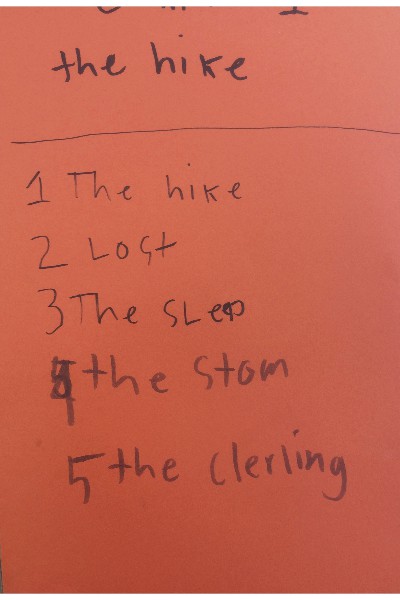 the hike
1 The hike
2 Lost
3 The sleep
4 the stom
5 the clerling